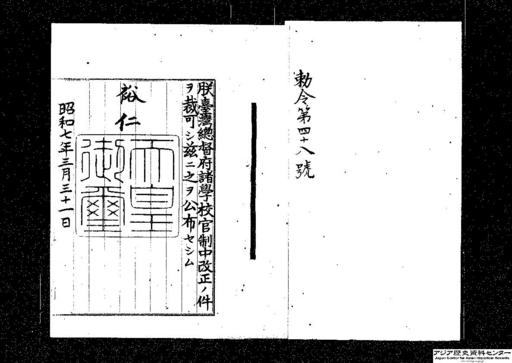 勅令第四十八號
朕臺灣總督府諸學校官制中改正ノ件
ヲ裁可シ茲ニ之ヲ公布セシム
裕仁
天皇
御璽
昭和七年三月三十一日
アジア歴史資料センター
Japan Center for Asian Historical Records